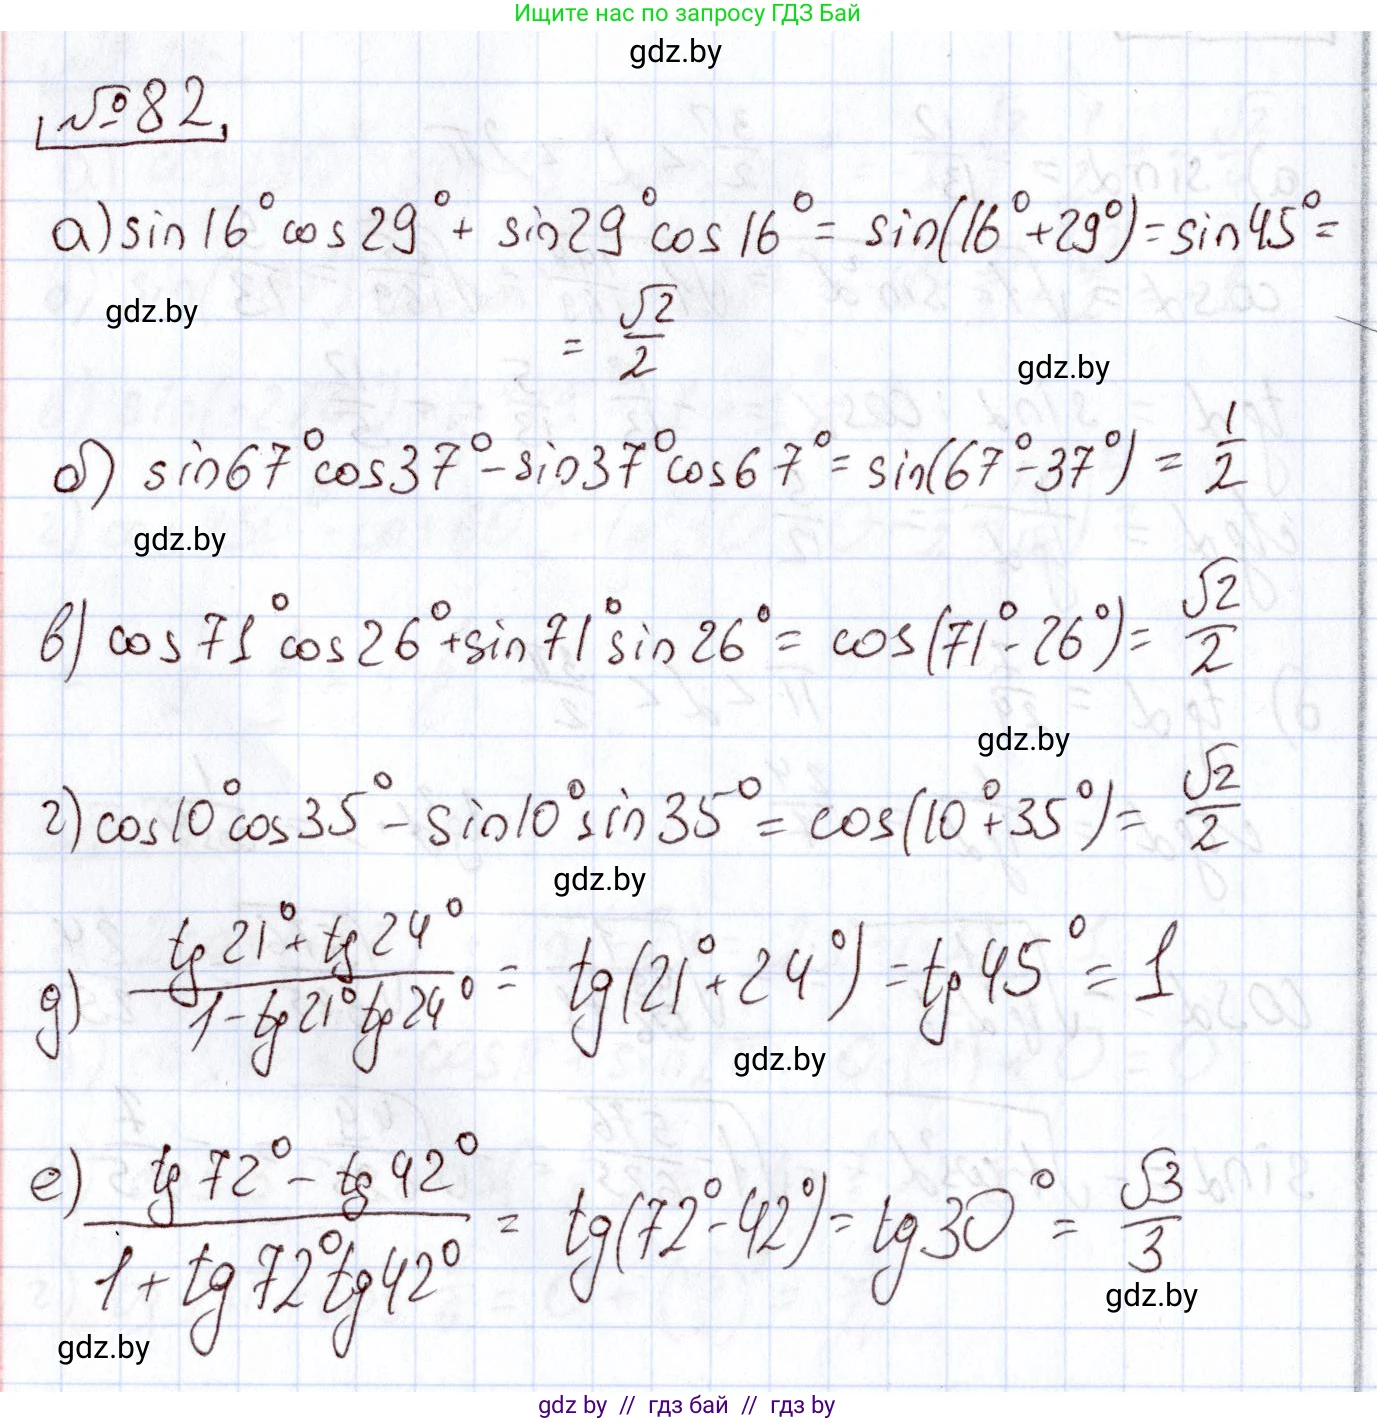 Ищите нас по запросу ГДЗ Бай
gdz.by
№82
а) sin16° cos29° + sin29° cos16° = sin(16° + 29°) = sin45° =
gdz.by
= √2/2
gdz.by
б) sin67° cos37° - sin37° cos67° = sin(67° - 37°) = 1/2
gdz.by
в) cos71° cos26° + sin71° sin26° = cos(71° - 26°) = √2/2
gdz.by
г) cos10° cos35° - sin10° sin35° = cos(10° + 35°) = √2/2
gdz.by
д) (tg21° + tg24°)/(1 - tg21° tg24°) = tg(21° + 24°) = tg45° = 1
gdz.by
е) (tg72° - tg42°)/(1 + tg72° tg42°) = tg(72° - 42°) = tg30° = √3/3
gdz.by
gdz.by
gdz by // гдз бай // гдз by